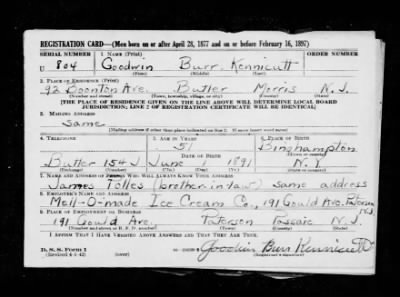 REGISTRATION CARD—(Men born on or after April 28, 1877 and on or before February 16, 1897)
SERIAL NUMBER 1. NAME (Print) ORDER NUMBER
U 804 Goodwin Burr Kennicutt
(First) (Middle) (Last)
2. PLACE OF RESIDENCE (Print)
92 Boonton Ave. Butler Morris N.J.
(Number and street) (Town, township, village, or city) (County) (State)
[THE PLACE OF RESIDENCE GIVEN ON THE LINE ABOVE WILL DETERMINE LOCAL BOARD
JURISDICTION; LINE 2 OF REGISTRATION CERTIFICATE WILL BE IDENTICAL]
3. MAILING ADDRESS
Same
[Mailing address if other than place indicated on line 2. If same insert word same]
4. TELEPHONE 5. AGE IN YEARS 6. PLACE OF BIRTH
51 Binghampton
DATE OF BIRTH (Town or county)
Butler 154J June 1891 N.Y.
(Exchange) (Number) (Mo.) (Day) (Yr.) (State or country)
7. NAME AND ADDRESS OF PERSON WHO WILL ALWAYS KNOW YOUR ADDRESS
James Tolles (brother in law) same address
8. EMPLOYER'S NAME AND ADDRESS
Mell-O-made Ice Cream Co., 191 Gould Ave. Paterson N.J.
9. PLACE OF EMPLOYMENT OR BUSINESS
191 Gould Ave. Paterson Passaic N.J.
(Number and street or R. F. D. number) (Town) (County) (State)
I AFFIRM THAT I HAVE VERIFIED ABOVE ANSWERS AND THAT THEY ARE TRUE.
D. S. S. Form 1
(Revised 4-1-42) (over) Goodwin Burr Kennicutt